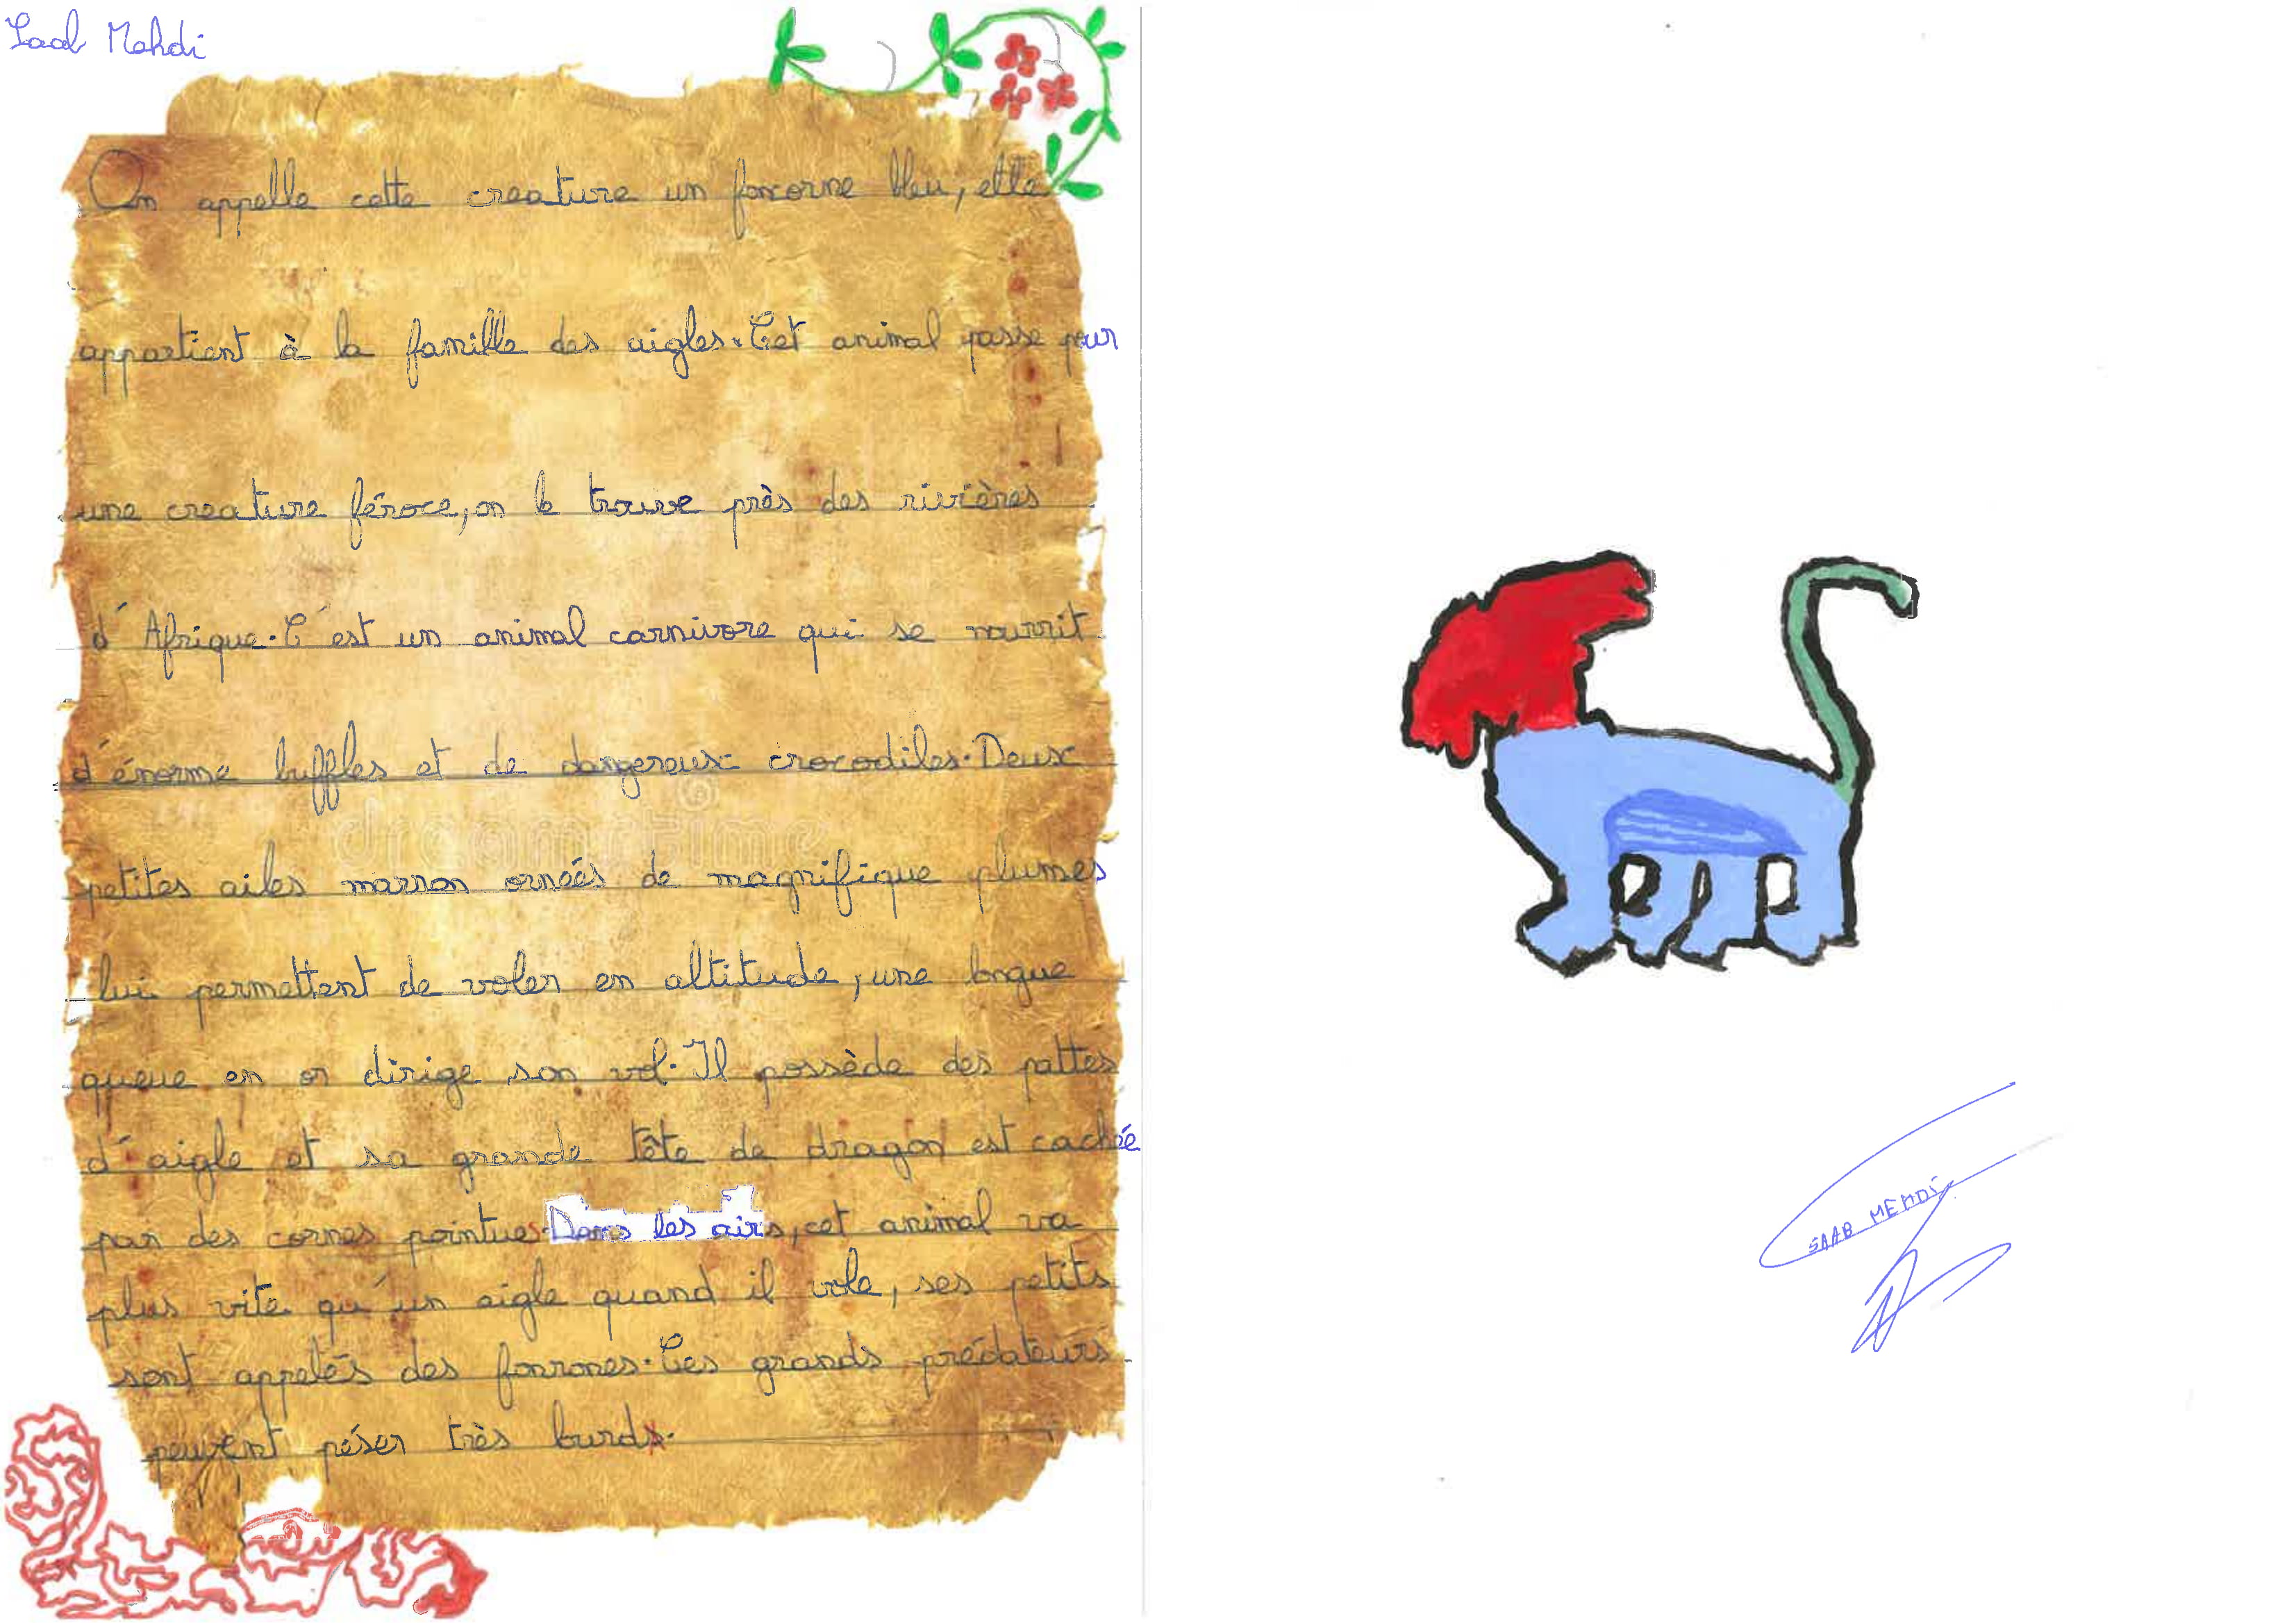 Saab Mehdi
On appelle cette creature un foxcorne bleu, elle
appartient à la famille des aigles. Cet animal passe pour
une creature féroce, on le trouve près des rivières
d'Afrique. C'est un animal carnivore qui se nourrit
d'énorme buffles et de dangereux crocodiles. Deux
petites ailes marron orneés de magnifique plumes
dreamstime
lui permettent de voler en altitude, une longue
queue en or dirige son vol. Il possède des pattes
d'aigle et sa grande tête de dragon est cachée
par des cornes pointues. Dans les airs, cet animal va
plus vite qu'un aigle quand il vole, ses petits
sont appelés des Ces grands prédateurs
peuvent péser très lourds.
SAAB MEHDI